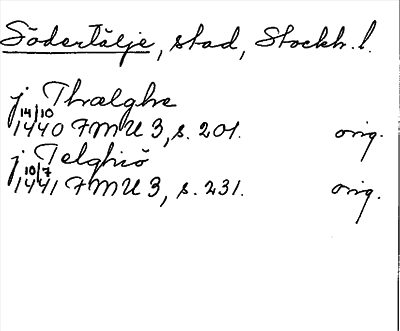 Södertälje, stad, Stockh. l.
j Thælghe
14/10 1440 FMU 3, s. 201. orig.
j Telghiö
10/7 1441 FMU 3, s. 231. orig.